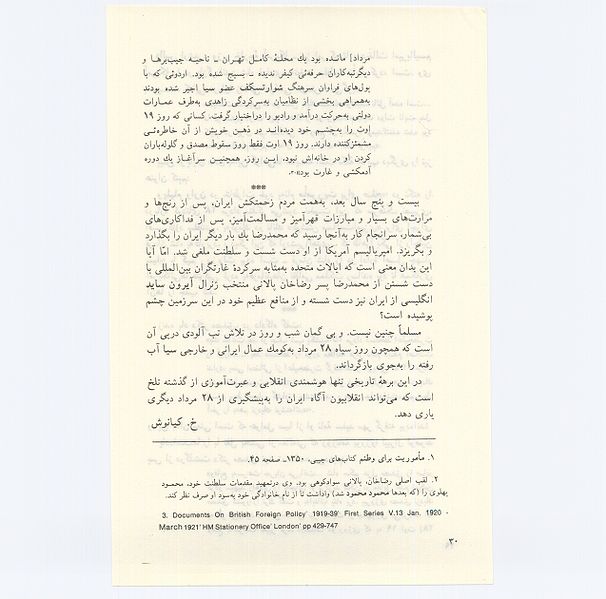 مرداد] مانده بود یك محلهٔ کامل تهران ـ ناحیه جیب‌برها و
دیگر تبه‌کاران حرفه‌ئی کیفر ندیده ـ بسیج شده بود. اردوئی که با
پول‌های فراوان سرهنگ شوارتسکف عضو سیا اجیر شده بودند
به‌همراهی بخشی از نظامیان به‌سرکردگی زاهدی به‌طرف عمارات
دولتی به‌حرکت درآمد و رادیو را دراختیار گرفت. کسانی که روز ۱۹
اوت را به‌چشم خود دیده‌اند در ذهن خویش از آن خاطره‌ئی
مشمئزکننده دارند. روز ۱۹ اوت فقط روز سقوط مصدق و گلوله‌باران
کردن او در خانه‌اش نبود، این روز، همچنین سرآغاز یك دوره
آدمکشی و غارت بود»
***
بیست و پنج سال بعد، به‌همت مردم زحمتکش ایران، پس از رنج‌ها و
مرارت‌های بسیار و مبارزات قهرآمیز و مسالمت‌آمیز، پس از فداکاری‌های
بی‌شمار، سرانجام کار به‌آنجا رسید که محمدرضا یك بار دیگر ایران را بگذارد
و بگریزد. امپریالیسم آمریکا از او دست شست و سلطنت ملغی شد. امّا آیا
این بدان معنی است که ایالات متحده به‌مثابه سرکردهٔ غارتگران بین‌المللی با
دست شستن از محمدرضا پسر رضاخان پالانی منتخب ژنرال آیرون ساید
انگلیسی از ایران نیز دست شسته و از منافع عظیم خود در این سرزمین چشم
پوشیده است؟
مسلماً چنین نیست. و بی گمان شب و روز در تلاش تب آلودی درپی آن
است که همچون روز سیاه ۲۸ مرداد به‌کومك عمال ایرانی و خارجی سیا آب
رفته را به‌جوی بازگرداند.
در این برههٔ تاریخی تنها هوشمندی انقلابی و عبرت‌آموزی از گذشته تلخ
است که می‌تواند انقلابیون آگاه ایران را به‌پیشگیری از ۲۸ مرداد دیگری
یاری دهد.
خ. کیانوش
۱. مأموریت برای وطنم کتاب‌های جیبی، ۱۳۵۰ـ صفحه ۴۵.
۲. لقب اصلی رضاخان، پالانی سوادکوهی بود. وی درتمهید مقدمات سلطنت خود، محمود
پهلوی را (که بعدها محمود محمود شد) واداشت تا از نام خانوادگی خود به‌سود او صرف نظر کند.
3. Documents On British Foreign Policy' 1919-39' First Series V.13 Jan. 1920 -
March 1921' HM Stationery Office' London' pp 429-747
۳۰